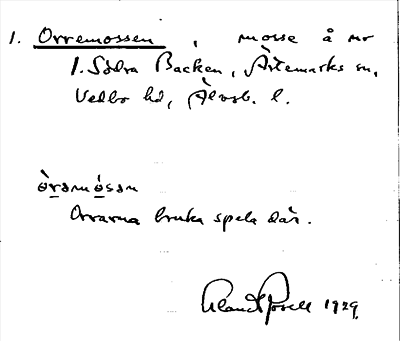 1. Orremossen, mosse å nr
1. Södra Backen, Ärtemarks sn,
Vedbo hd, Älvsb. l.
òrəmósən
Orrarna bruka spela där.
1929